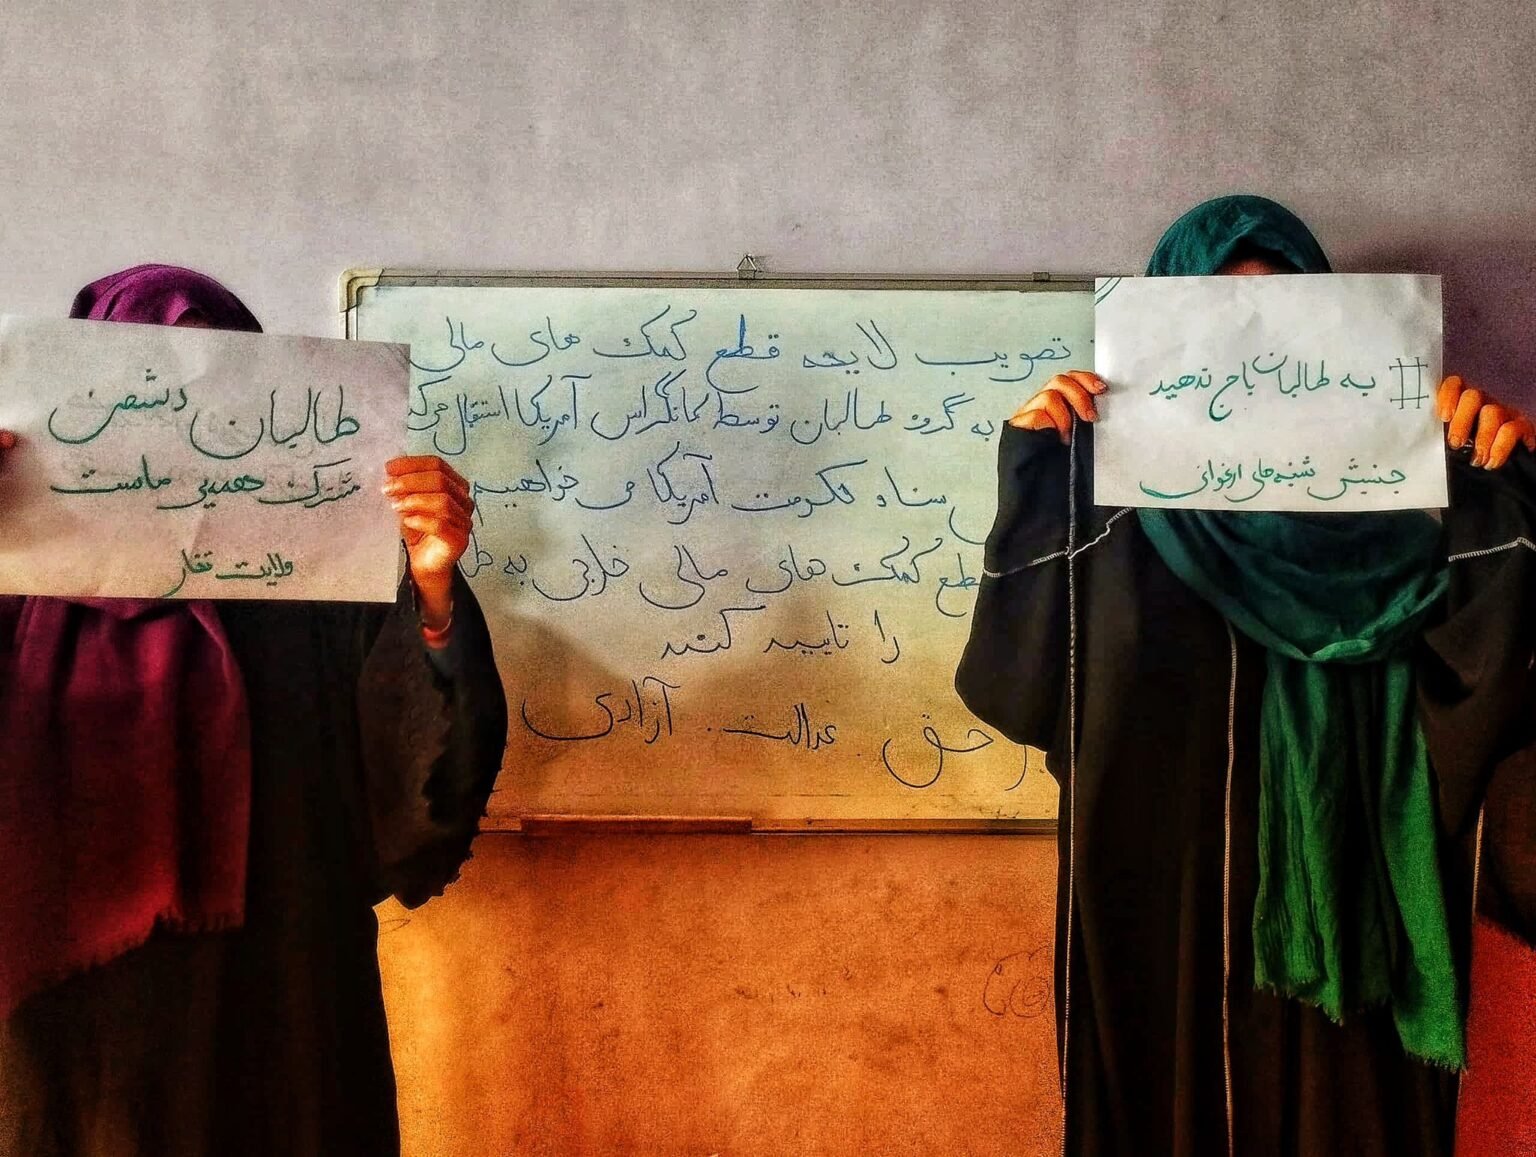 طالبان دشمن
مشترک همه‌ی ماست
ولایت تخار
تصویب لایحه قطع کمک های مالی
به گروه طالبان توسط کانگراس آمریکا استقبال می‌کن
سنا و حکومت آمریکا می خواهیم
قطع کمک های مالی خارجی به طا
را تایید کنند
حق . عدالت . آزادی
# به طالبان باج ندهید
جنبش شنبه های ارغوانی